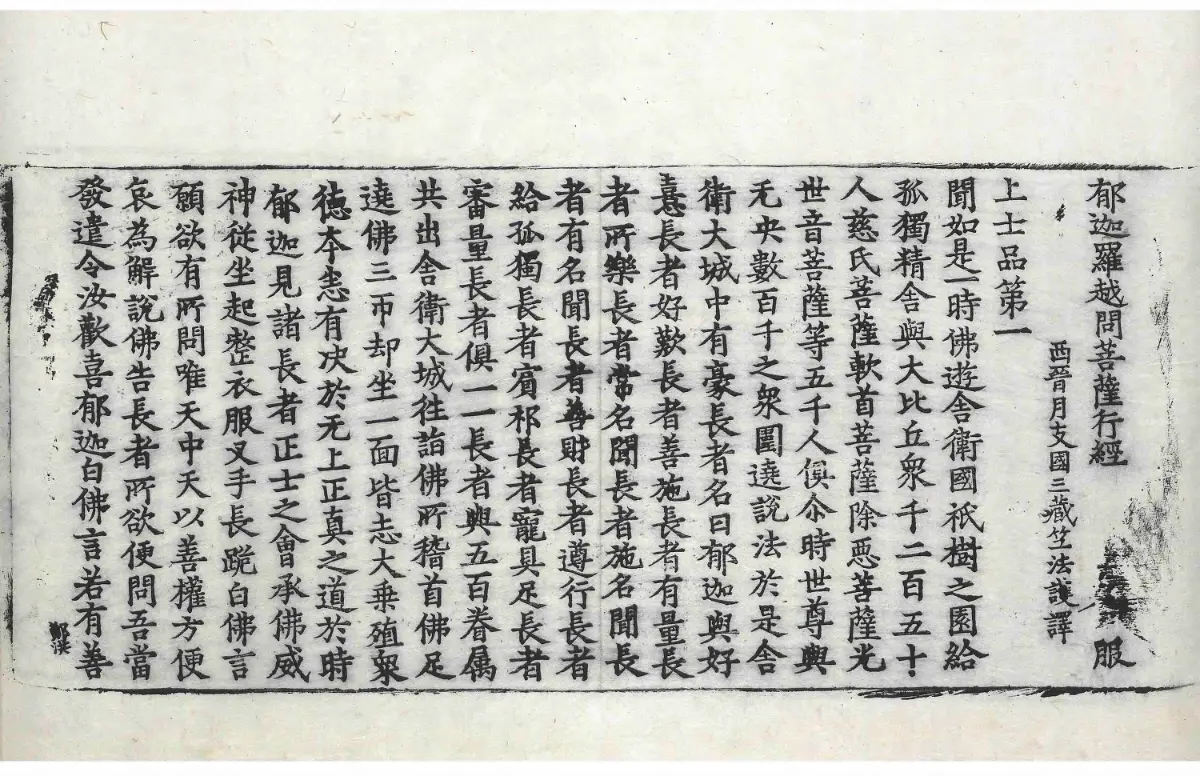 郁迦羅越問菩薩行經 服
西晉月支國三藏竺法護譯
上士品第一
聞如是一時佛遊舍衛國祇樹之園給
孤獨精舍與大比丘衆千二百五十
人慈氏菩薩軟首菩薩除惡菩薩光
世音菩薩等五千人俱尒時世尊與
无央數百千之衆圍遶說法於是舍
衛大城中有豪長者名曰郁迦與好
憙長者好歎長者善施長者有量長
者所樂長者常名聞長者施名聞長
者有名聞長者善財長者遵行長者
給孤獨長者賓祁長者寵具足長者
審量長者俱一一長者與五百眷屬
共出舍衛大城往詣佛所稽首佛足
遶佛三帀却坐一面皆志大乗殖衆
德夲悉有决於无上正真之道於時
郁迦見諸長者正士之會承佛威
神從坐起整衣服叉手長跪白佛言
願欲有所問唯天中天以善權方便
哀為解說佛告長者所欲便問吾當
發遣令汝歡喜郁迦白佛言若有善